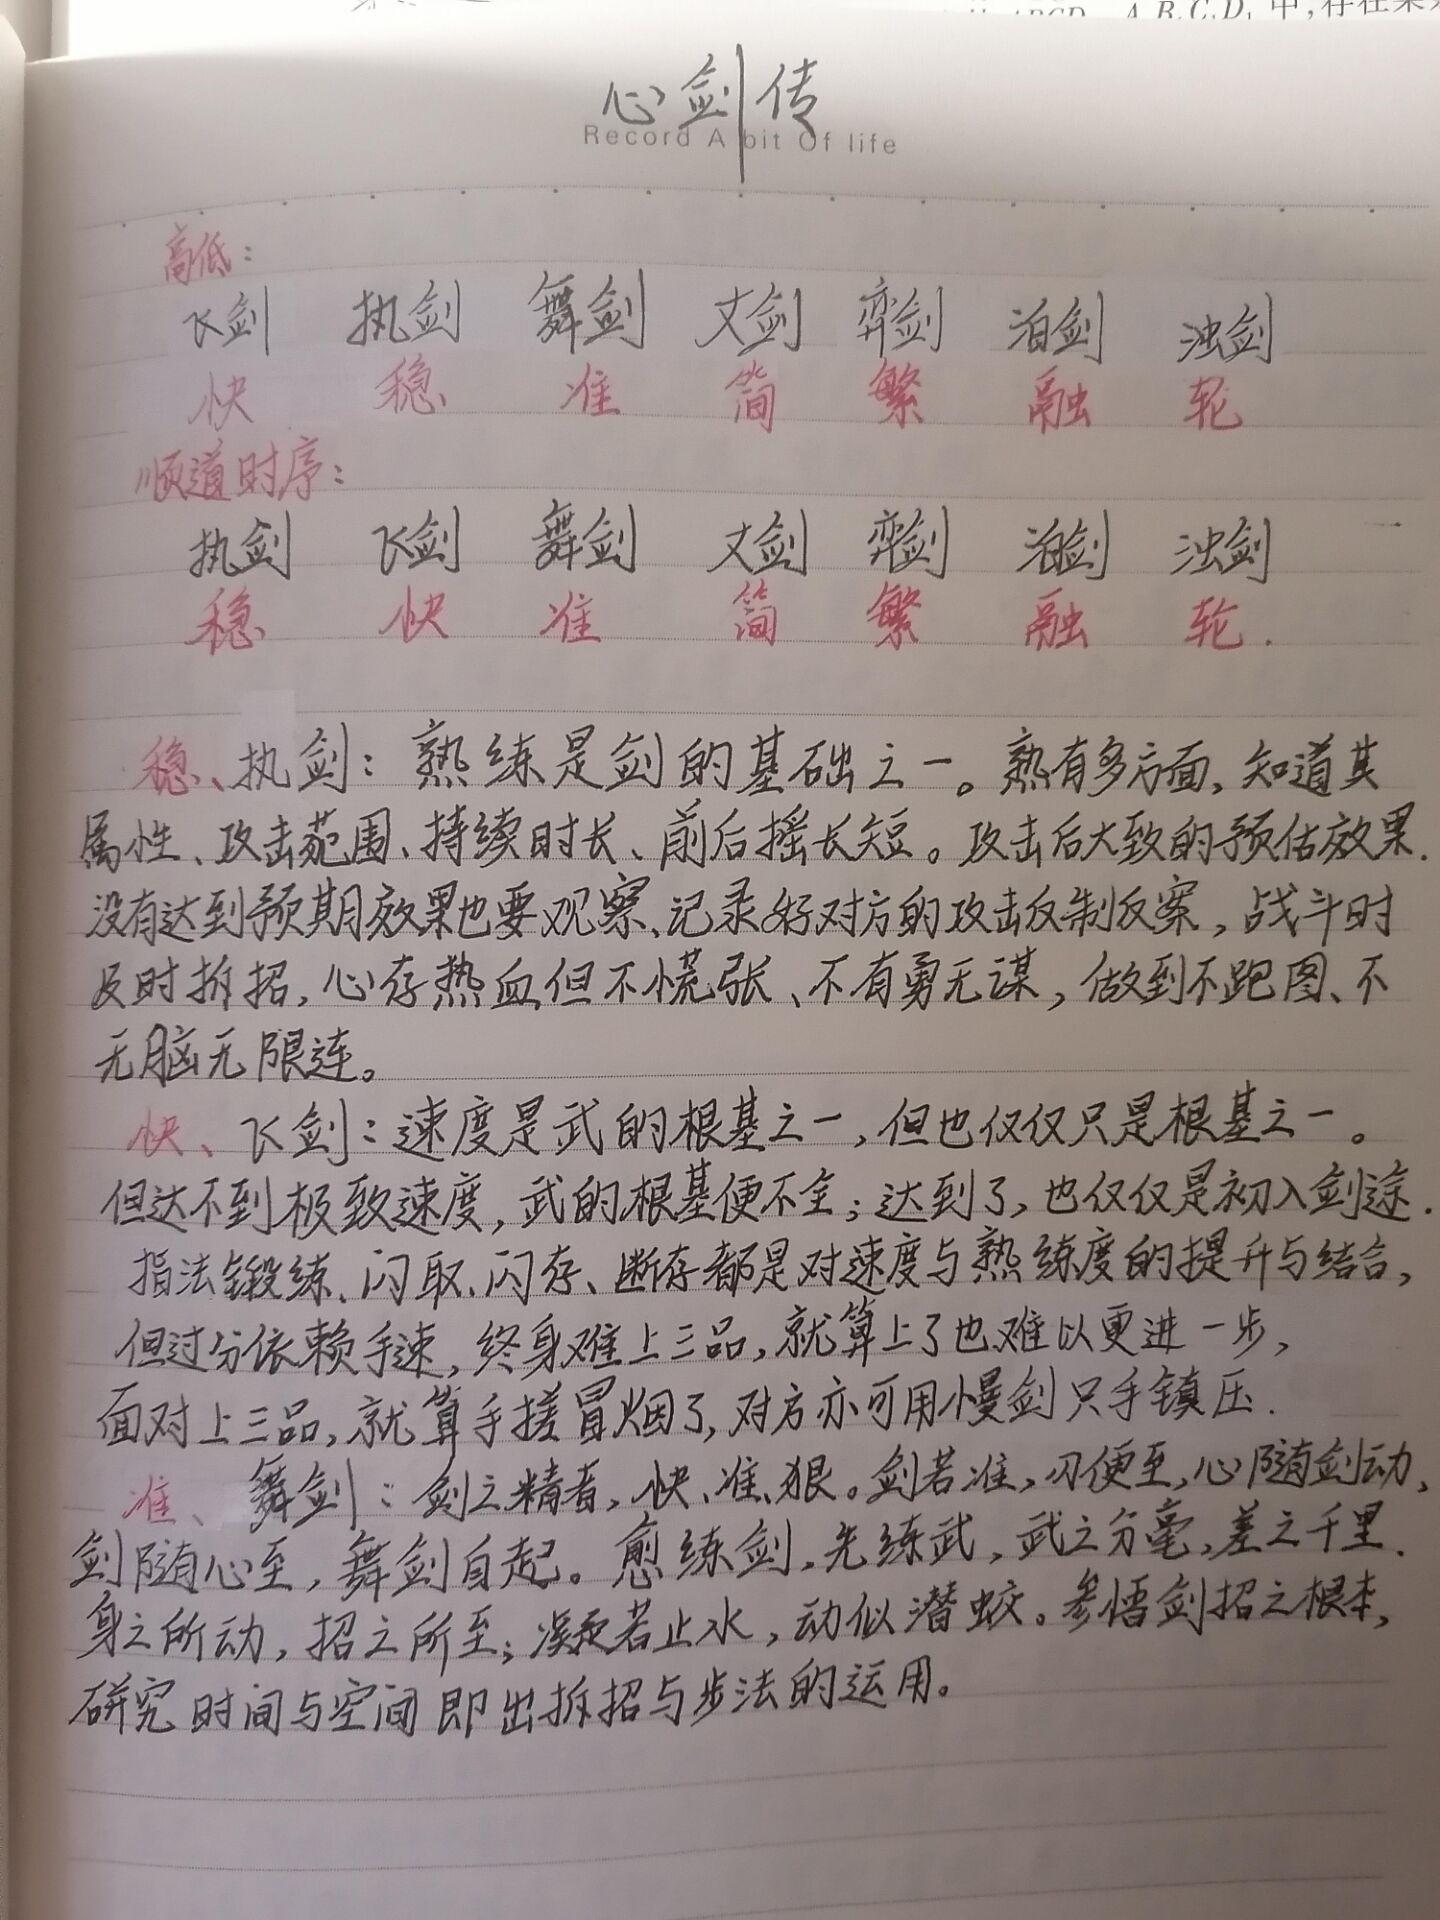 ABCD-A₁B₁C₁D₁中,存在某
心剑传
Record A bit Of life
高低:
飞剑 执剑 舞剑 丈剑 弈剑 泊剑 浊剑
快 稳 准 简 繁 融 轮
顺道时序:
执剑 飞剑 舞剑 丈剑 弈剑 泊剑 浊剑
稳 快 准 简 繁 融 轮.
稳、执剑:熟练是剑的基础之一。熟有多方面,知道其
属性、攻击范围、持续时长、前后摇长短。攻击后大致的预估效果.
没有达到预期效果也要观察、记录好对方的攻击反制反案,战斗时
及时拆招,心存热血但不慌张、不有勇无谋,做到不跑图、不
无脑无限连。
快、飞剑:速度是武的根基之一,但也仅仅只是根基之一。
但达不到极致速度,武的根基便不全;达到了,也仅仅是初入剑途.
指法锻练、闪取、闪存、断存都是对速度与熟练度的提升与结合,
但过分依赖手速,终身难上三品,就算上了也难以更进一步,
面对上三品,就算手搓冒烟了,对方亦可用慢剑只手镇压.
准、舞剑:剑之精者,快、准、狠。剑若准,刃便至,心随剑动,
剑随心至,舞剑自起。愈练剑,先练武,武之分毫,差之千里.
身之所动,招之所至;凝若止水,动似潜蛟。参悟剑招之根本,
研究时间与空间即出拆招与步法的运用。